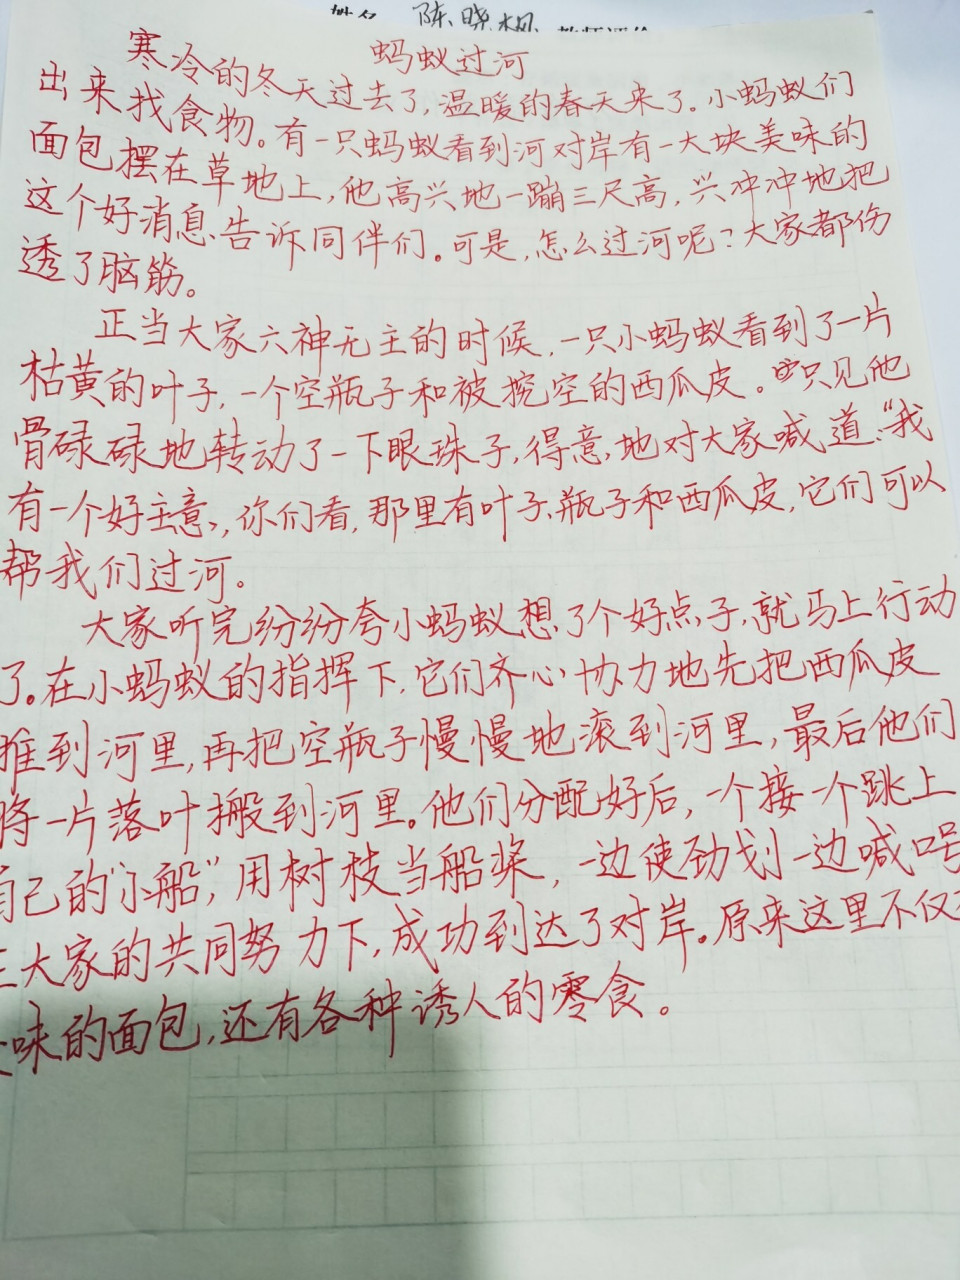 姓名 陈晓枫 教师评价
蚂蚁过河
寒冷的冬天过去了,温暖的春天来了。小蚂蚁们
出来找食物。有一只蚂蚁看到河对岸有一大块美味的
面包摆在草地上,他高兴地一蹦三尺高,兴冲冲地把
这个好消息告诉同伴们。可是,怎么过河呢?大家都伤
透了脑筋。
正当大家六神无主的时候,一只小蚂蚁看到了一片
枯黄的叶子,一个空瓶子和被挖空的西瓜皮。只见他
骨碌碌地转动了一下眼珠子,得意地对大家喊道:“我
有一个好主意,你们看,那里有叶子、瓶子和西瓜皮,它们可以
帮我们过河。
大家听完纷纷夸小蚂蚁想了个好点子,就马上行动
了。在小蚂蚁的指挥下,它们齐心协力地先把西瓜皮
推到河里,再把空瓶子慢慢地滚到河里,最后他们
将一片落叶搬到河里。他们分配好后,一个接一个跳上
自己的“小船”,用树枝当船桨,一边使劲划一边喊口号
在大家的共同努力下,成功到达了对岸。原来这里不仅
味的面包,还有各种诱人的零食。